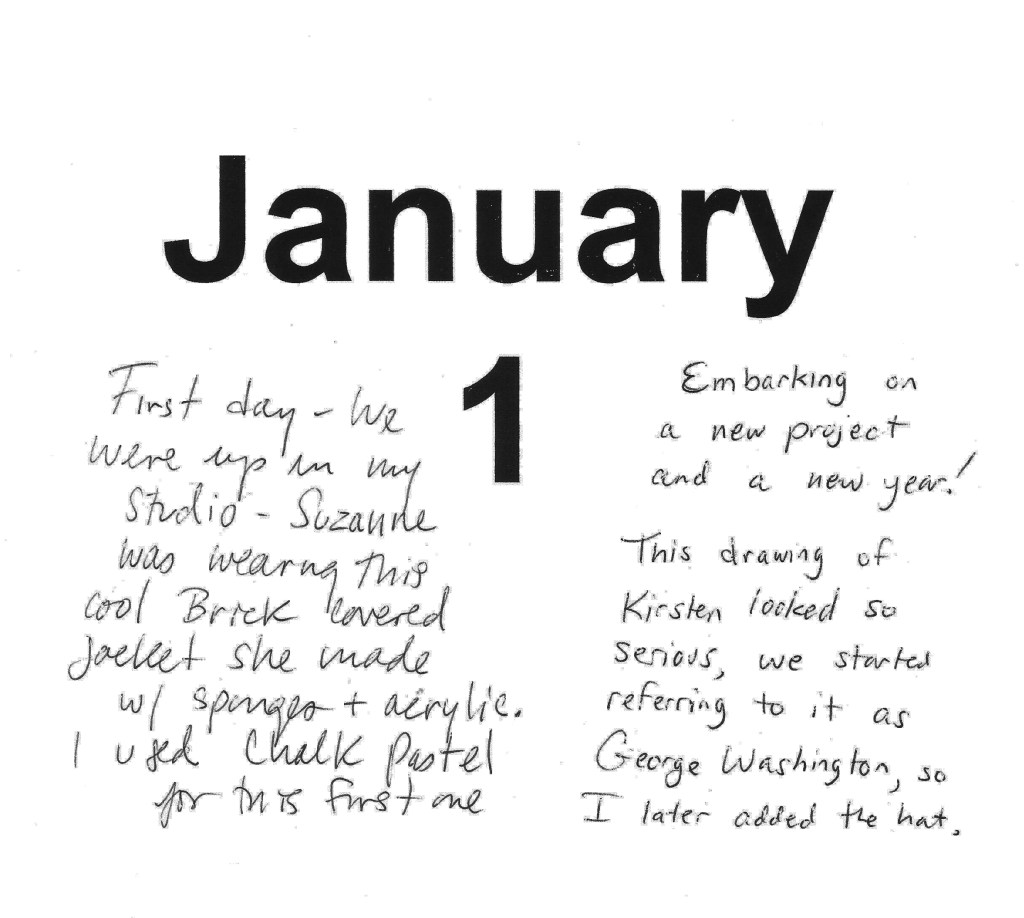 January
1
First day - We
were up in my
studio - Suzanne
was wearng this
cool Brick covered
jacket she made
w/ sponges + acrylic.
I used Chalk pastel
for this first one
Embarking on
a new project
and a new year!
This drawing of
Kirsten looked so
serious, we started
referring to it as
George Washington, so
I later added the hat.